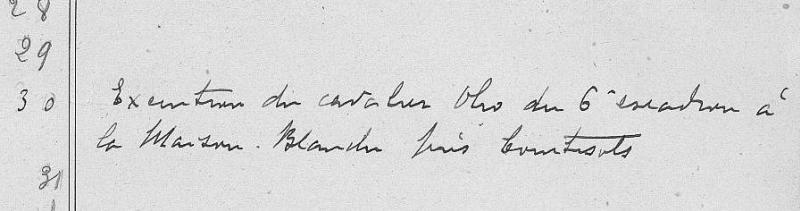 28
29
30 Execution du cavalier Olio du 6e escadron à
la Maison-Blanche près Courtisols
31